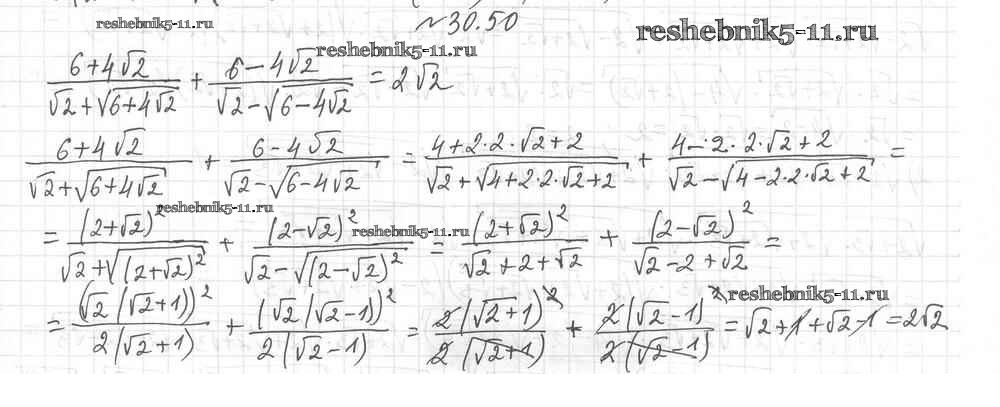 reshebnik5-11.ru
№30.50
reshebnik5-11.ru
reshebnik5-11.ru
(6+4√2)/(√2+√(6+4√2)) + (6-4√2)/(√2-√(6-4√2)) = 2√2
(6+4√2)/(√2+√(6+4√2)) + (6-4√2)/(√2-√(6-4√2)) = (4+2·2·√2+2)/(√2+√(4+2·2√2+2)) + (4-2·2√2+2)/(√2-√(4-2·2√2+2)) =
reshebnik5-11.ru
reshebnik5-11.ru
= (2+√2)²/(√2+√(2+√2)²) + (2-√2)²/(√2-√(2-√2)²) = (2+√2)²/(√2+2+√2) + (2-√2)²/(√2-2+√2) =
reshebnik5-11.ru
= (√2(√2+1))²/(2(√2+1)) + (√2(√2-1))²/(2(√2-1)) = 2(√2+1)²/(2(√2+1)) + 2(√2-1)²/(2(√2-1)) = √2+1+√2-1=2√2